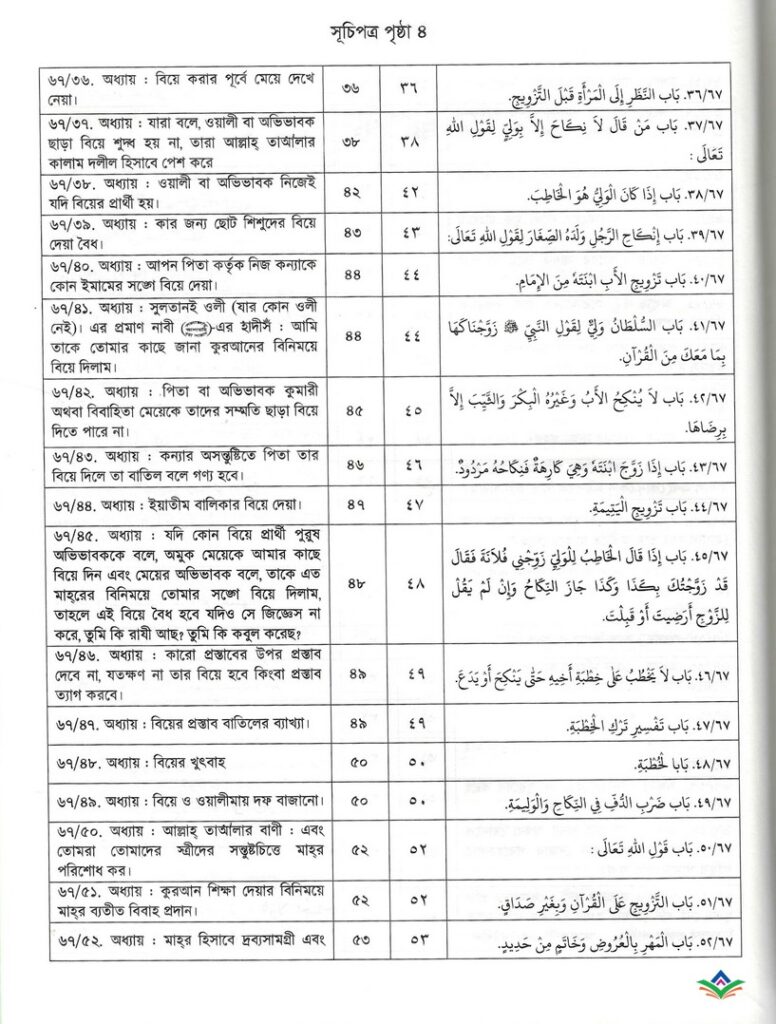 সূচিপত্র পৃষ্ঠা ৪
৬৭/৩৬. অধ্যায় : বিয়ে করার পূর্বে মেয়ে দেখে
নেয়া।
৩৬
٣٦
٣٦/٦٧. بَاب النَّظَرِ إِلَى الْمَرْأَةِ قَبْلَ التَّزْوِيجِ.
৬৭/৩৭. অধ্যায় : যারা বলে, ওয়ালী বা অভিভাবক
ছাড়া বিয়ে শুদ্ধ হয় না, তারা আল্লাহ্ তাআলার
কালাম দলীল হিসাবে পেশ করে
৩৮
٣٨
٣٧/٦٧. بَاب مَنْ قَالَ لاَ نِكَاحَ إِلاَّ بِوَلِيٍّ لِقَوْلِ اللهِ
تَعَالَى :
৬৭/৩৮. অধ্যায় : ওয়ালী বা অভিভাবক নিজেই
যদি বিয়ের প্রার্থী হয়।
৪২
٤٢
٣٨/٦٧. بَاب إِذَا كَانَ الْوَلِيُّ هُوَ الْخَاطِبَ.
৬৭/৩৯. অধ্যায় : কার জন্য ছোট শিশুদের বিয়ে
দেয়া বৈধ।
৪৩
٤٣
٣٩/٦٧. بَاب إِنْكَاحِ الرَّجُلِ وَلَدَهُ الصِّغَارَ لِقَوْلِ اللهِ تَعَالَى:
৬৭/৪০. অধ্যায় : আপন পিতা কর্তৃক নিজ কন্যাকে
কোন ইমামের সঙ্গে বিয়ে দেয়া।
৪৪
٤٤
٤٠/٦٧. بَاب تَزْوِيجِ الأَبِ ابْنَتَهُ مِنَ الإِمَامِ.
৬৭/৪১. অধ্যায় : সুলতানই ওলী (যার কোন ওলী
নেই)। এর প্রমাণ নাবী (ﷺ)-এর হাদীস : আমি
তাকে তোমার কাছে জানা কুরআনের বিনিময়ে
বিয়ে দিলাম।
৪৪
٤٤
٤١/٦٧. بَاب السُّلْطَانُ وَلِيٌّ لِقَوْلِ النَّبِيِّ ﷺ زَوَّجْنَاكَهَا
بِمَا مَعَكَ مِنَ الْقُرْآنِ.
৬৭/৪২. অধ্যায় : পিতা বা অভিভাবক কুমারী
অথবা বিবাহিতা মেয়েকে তাদের সম্মতি ছাড়া বিয়ে
দিতে পারে না।
৪৫
٤٥
٤٢/٦٧. بَاب لاَ يُنْكِحُ الأَبُ وَغَيْرُهُ الْبِكْرَ وَالثَّيِّبَ إِلاَّ
بِرِضَاهَا.
৬৭/৪৩. অধ্যায় : কন্যার অসন্তুষ্টিতে পিতা তার
বিয়ে দিলে তা বাতিল বলে গণ্য হবে।
৪৬
٤٦
٤٣/٦٧. بَاب إِذَا زَوَّجَ ابْنَتَهُ وَهِيَ كَارِهَةٌ فَنِكَاحُهُ مَرْدُودٌ.
৬৭/৪৪. অধ্যায় : ইয়াতীম বালিকার বিয়ে দেয়া।
৪৭
٤٧
٤٤/٦٧. بَاب تَزْوِيجِ الْيَتِيمَةِ.
৬৭/৪৫. অধ্যায় : যদি কোন বিয়ে প্রার্থী পুরুষ
অভিভাবককে বলে, অমুক মেয়েকে আমার কাছে
বিয়ে দিন এবং মেয়ের অভিভাবক বলে, তাকে এত
মাহ্‌রের বিনিময়ে তোমার সঙ্গে বিয়ে দিলাম,
তাহলে এই বিয়ে বৈধ হবে যদিও সে জিজ্ঞেস না
করে, তুমি কি রাযী আছ? তুমি কি কবুল করেছ?
৪৮
٤٨
٤٥/٦٧. بَاب إِذَا قَالَ الْخَاطِبُ لِلْوَلِيِّ زَوِّجْنِي فُلاَنَةَ فَقَالَ
قَدْ زَوَّجْتُكَ بِكَذَا وَكَذَا جَازَ النِّكَاحُ وَإِنْ لَمْ يَقُلْ
لِلزَّوْجِ أَرَضِيتَ أَوْ قَبِلْتَ.
৬৭/৪৬. অধ্যায় : কারো প্রস্তাবের উপর প্রস্তাব
দেবে না, যতক্ষণ না তার বিয়ে হবে কিংবা প্রস্তাব
ত্যাগ করবে।
৪৯
٤٩
٤٦/٦٧. بَاب لاَ يَخْطُبُ عَلَى خِطْبَةِ أَخِيهِ حَتَّى يَنْكِحَ أَوْ يَدَعَ.
৬৭/৪৭. অধ্যায় : বিয়ের প্রস্তাব বাতিলের ব্যাখ্যা।
৪৯
٤٩
٤٧/٦٧. بَاب تَفْسِيرِ تَرْكِ الْخِطْبَةِ.
৬৭/৪৮. অধ্যায় : বিয়ের খুৎবাহ
৫০
٥٠
٤٨/٦٧. بَابا لْخُطْبَةِ.
৬৭/৪৯. অধ্যায় : বিয়ে ও ওয়ালীমায় দফ বাজানো।
৫০
٥٠
٤٩/٦٧. بَاب ضَرْبِ الدُّفِّ فِي النِّكَاحِ وَالْوَلِيمَةِ.
৬৭/৫০. অধ্যায় : আল্লাহ্ তাআলার বাণী : এবং
তোমরা তোমাদের স্ত্রীদের সন্তুষ্টচিত্তে মাহ্‌র
পরিশোধ কর।
৫২
٥٢
٥٠/٦٧. بَاب قَوْلِ اللهِ تَعَالَى :
৬৭/৫১. অধ্যায় : কুরআন শিক্ষা দেয়ার বিনিময়ে
মাহ্‌র ব্যতীত বিবাহ প্রদান।
৫২
٥٢
٥١/٦٧. بَاب التَّزْوِيجِ عَلَى الْقُرْآنِ وَبِغَيْرِ صَدَاقٍ.
৬৭/৫২. অধ্যায় : মাহ্‌র হিসাবে দ্রব্যসামগ্রী এবং
৫৩
٥٣
٥٢/٦٧. بَاب الْمَهْرِ بِالْعُرُوضِ وَخَاتَمٍ مِنْ حَدِيدٍ.